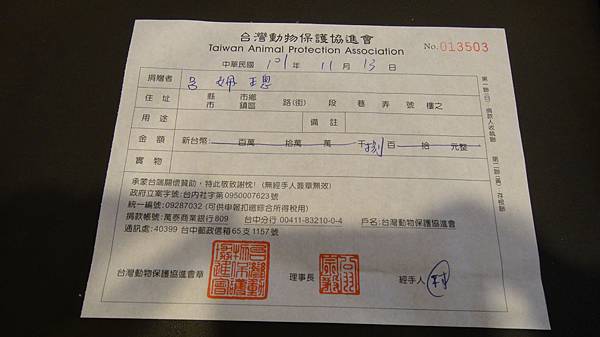 台灣動物保護協進會
Taiwan Animal Protection Association
No.013503
中華民國 101 年 11 月 13 日
捐贈者 呂
住址 縣市 市鄉鎮區 路(街) 段 巷 弄 號 樓之
用途 備註
金額 新台幣: 百萬 拾萬 萬 千 捌 百 拾 元整
實物
承蒙台端關懷贊助,特此敬致謝忱!(無經手人簽章無效)
政府立案字號:台內社字第0950007623號
統一編號:09287032 (可供申報扣繳綜合所得稅用)
捐款帳號:萬泰商業銀行809 台中分行 00411-83210-0-4 戶名:台灣動物保護協進會
通訊處:40399 台中郵政信箱65支1157號
台灣動物保護協進會章 理事長 經手人
第一聯(白):捐款人收執聯 第二聯(黃):存根聯